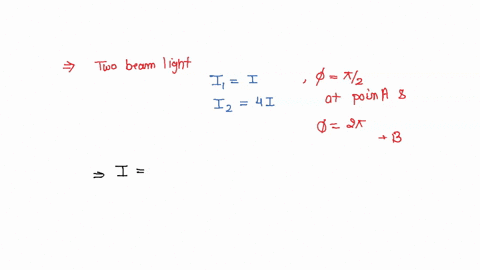 ⇒ Two beam light
I₁ = I , ϕ = π/2
I₂ = 4I at poin A &
ϕ = 2π
→ B
⇒ I =